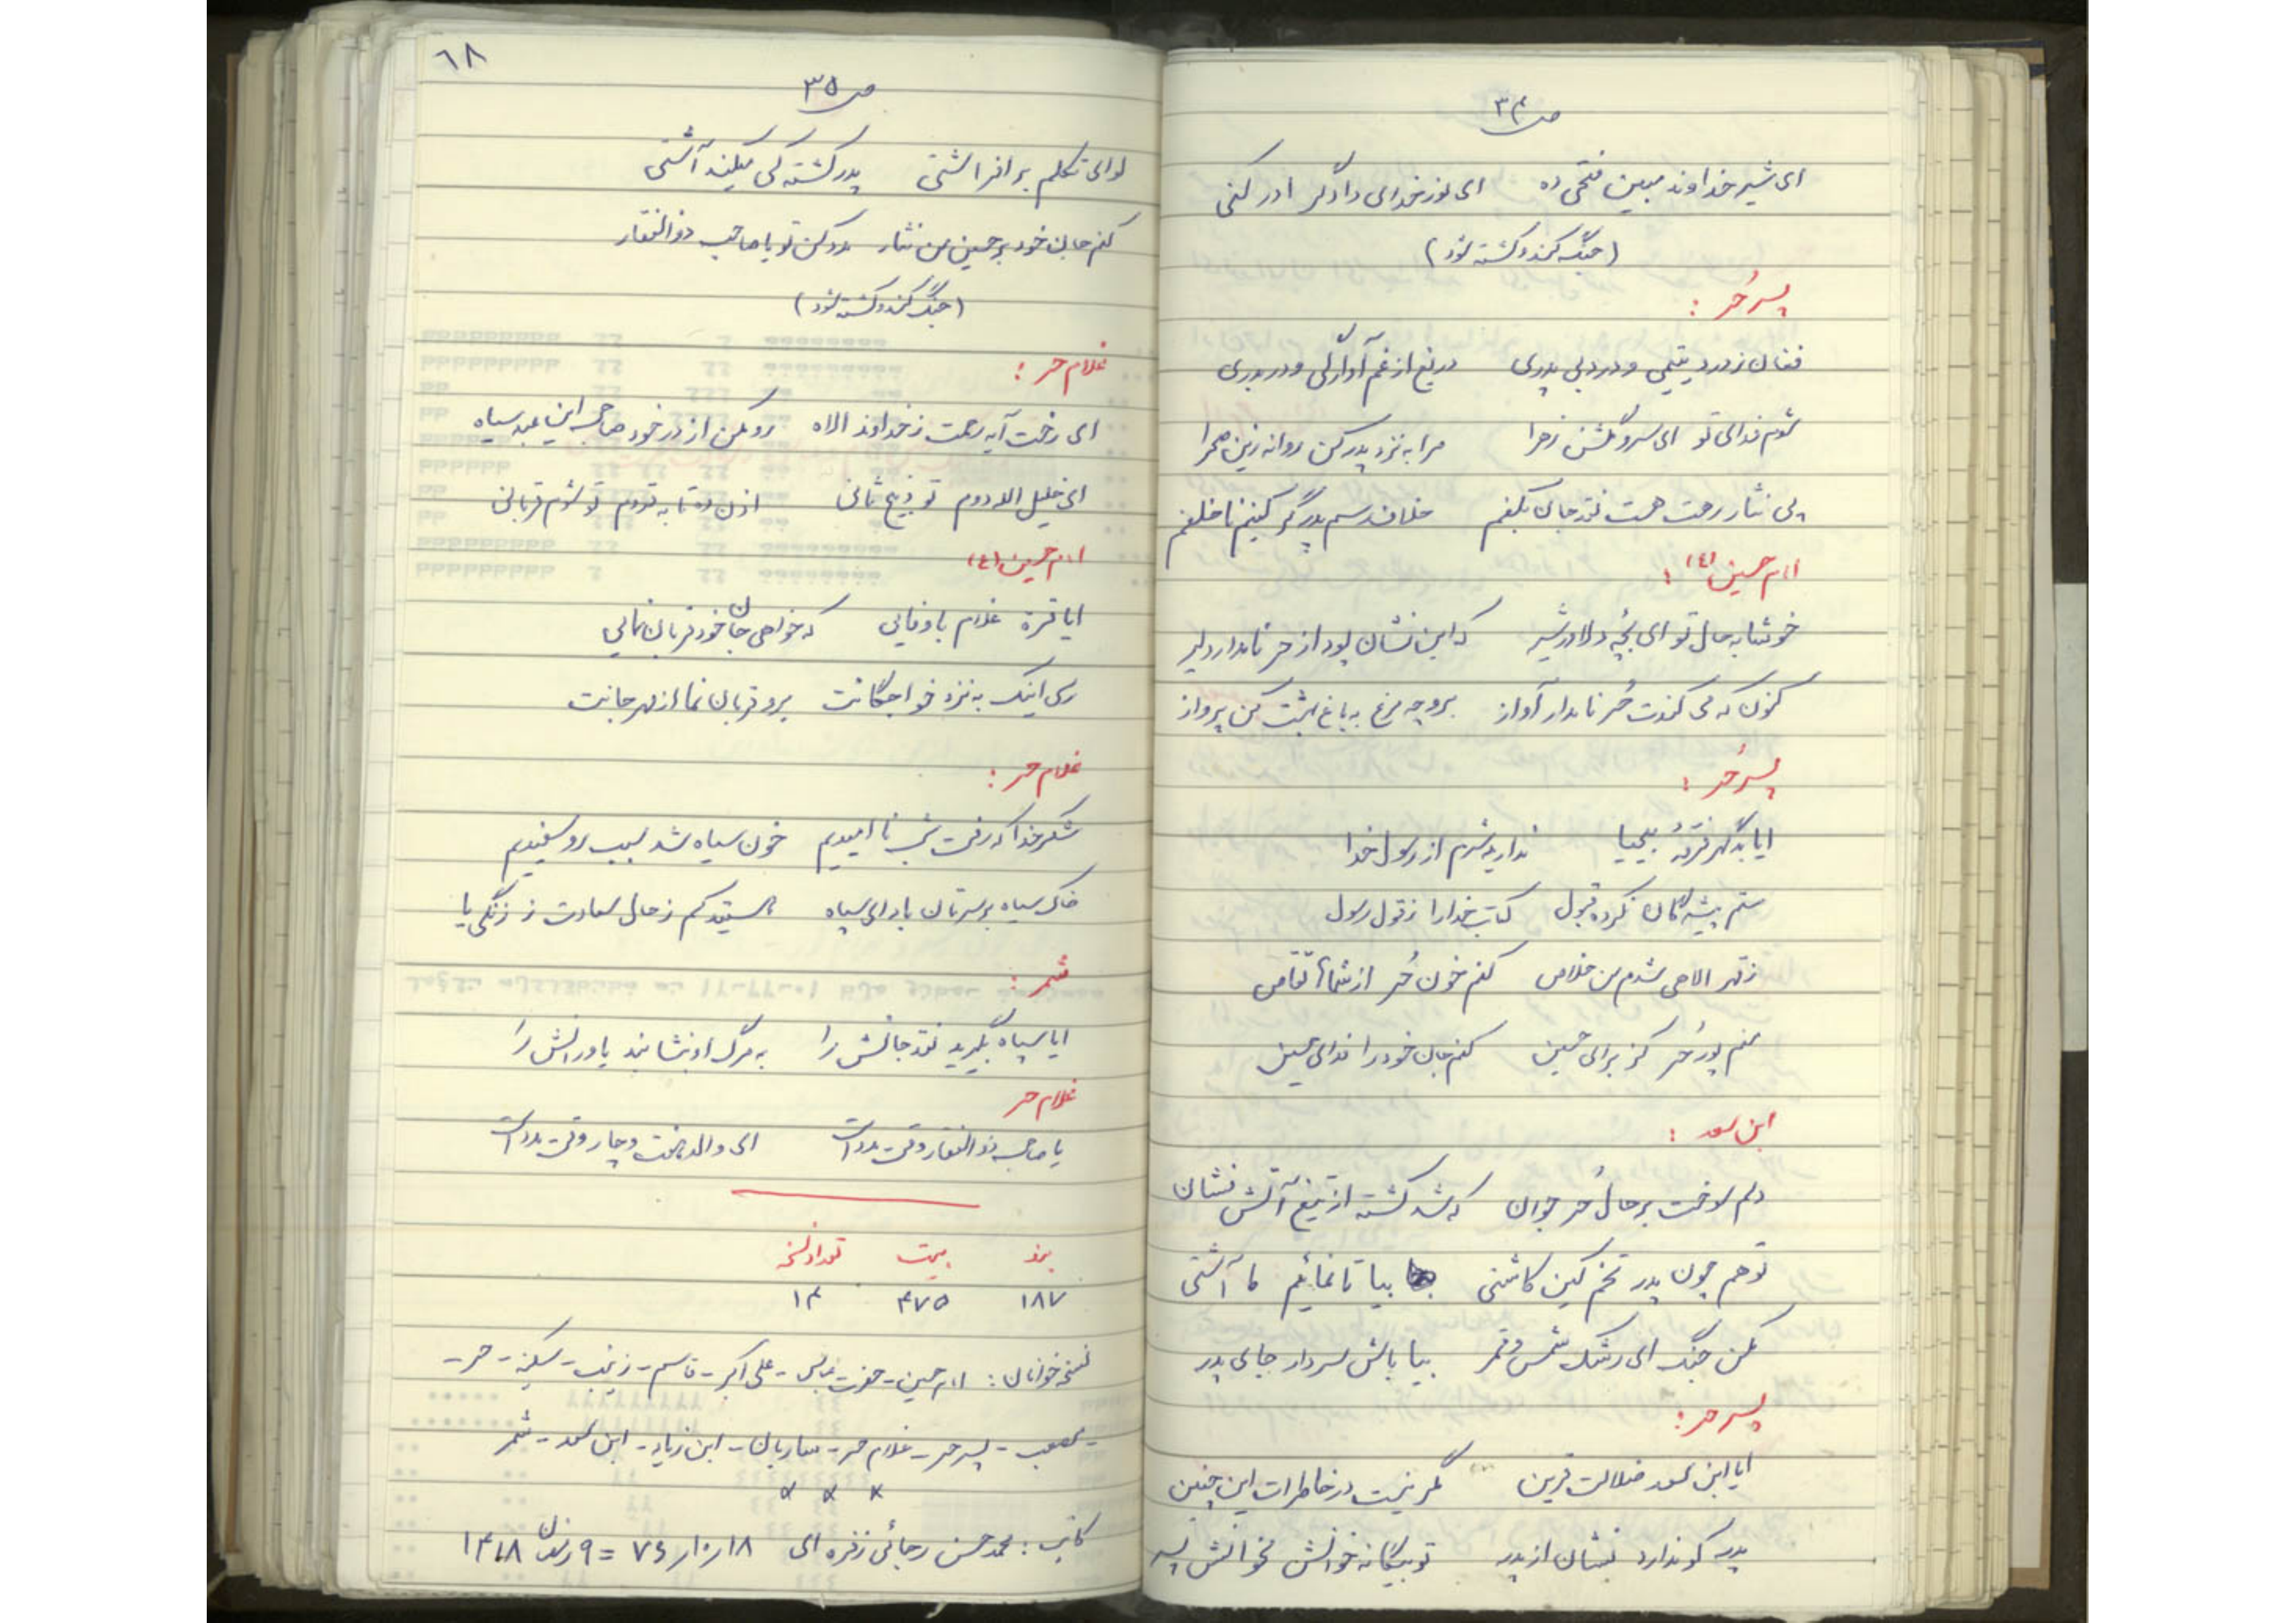 ص ۳۴
ای شیر خداوند مبین فتحی ده ای نور خدای دادگر ادرکنی
(جنگ کند و کشته شود)
پسر حُر :
فغان ز درد یتیمی و درد بی پدری دریغ از غم آوارگی و دربدری
شوم فدای تو ای سرو گلشن زهرا مرا به نزد پدر کن روانه زین صحرا
پی نثار رهت هست نقد جان بکفم خلاف رسم پدر گر کنم ناخلفم
امام حسین (ع) :
خوشا به حال تو ای بچه دلاور شیر که این نشان بود از حر نامدار دلیر
کنون که می کندت حُر نامدار آواز برو چه مرغ به باغ بهشت کن پرواز
پسر حُر :
ایا بدگهر فرقهٔ بیحیا ندارید شرم از رسول خدا
ستم پیشه گان نکرده قبول کتاب خدا را ز قول رسول
ز قهر الاهی شدم من خلاص کنم خون حُر از شما تقاص
منم پور حُر کز برای حسین کنم جان خود را فدای حسین
ابن سعد :
دلم سوخت بر حال حُر جوان که شد کشته از تیغ آتش نشان
تو هم چون پدر تخم کین کاشتی بیا تا نمائیم ما آشتی
مکن جنگ ای رشک شمس و قمر بیا باش سردار جای پدر
پسر حر :
ایا ابن سعد ضلالت قرین مگر نیست در خاطرات این چنین
پدر کو ندارد نشان از پدر تو بیگانه خوانش نخوانش پسر
۶۸
ص ۳۵
لوای تکلم برافراشتی پدر کشته کی میکند آشتی
کنم جان خود بر حسین من نثار مدد کن تو یا صاحب ذوالفقار
(جنگ کند و کشته شود)
غلام حر :
ای رخت آیه رحمت ز خداوند الاه رد مکن از در خود صاحب این عبد سیاه
ای خلیل الله دوم تو ذبیح ثانی اذن ده تا به قدوم تو شوم قربانی
امام حسین (ع)
ایا قرة غلام باوفایی که خواهی جان خود قربان نمائی
رسی اینک به نزد خواجگانت برو قربان نما از مهر جانت
غلام حر :
شکر خدا که رفت شب نا امیدیم خون سیاه شد سبب رو سفیدیم
خاک سیاه بر سرتان باد ای سپاه نیستید کم ز حال سعادت ز زنگی یا
شمر :
ایا سپاه بگیرید نقد جانش را به مرگ او بنشانید یاورانش را
غلام حر
یا صاحب ذوالفقار وقت مدد است ای والد هشت و چار وقت مدد است
بند بیت تعداد نسخه
۱۸۷ ۴۷۵ ۱۴
نسخه خوانان : امام حسین - حضرت عباس - علی اکبر - قاسم - زینب - سکینه - حر -
- مصعب - پسر حر - غلام حر - ساربان - ابن زیاد - ابن سعد - شمر
* * *
کاتب : محمد حسن رجائی زفره ای ۷۶/۱۰/۱۸ = ۹ رمضان ۱۴۱۸